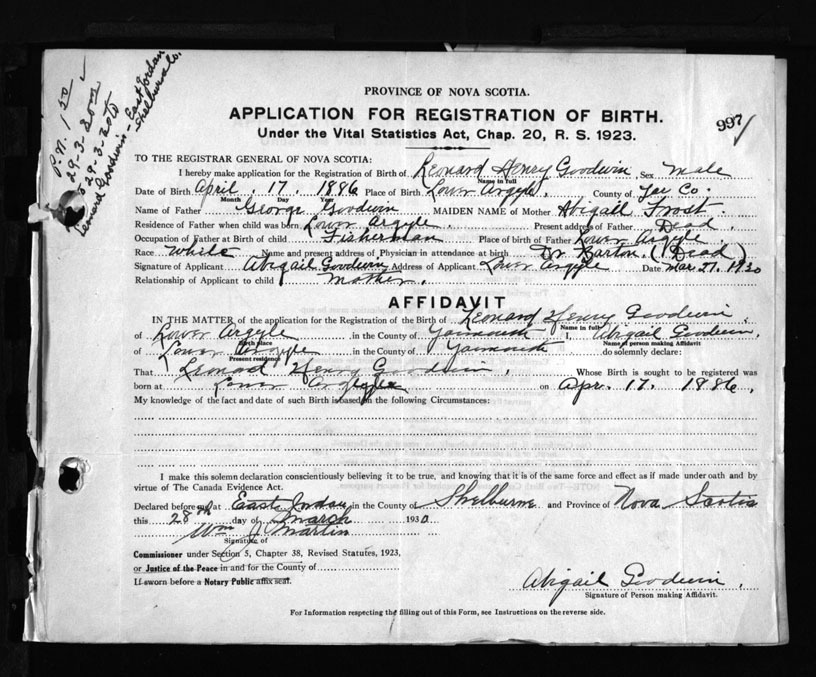 P.N. 1 50
29-3-30
29-3-30
Leonard Goodwin - East Jordan
Shelburne Co.
PROVINCE OF NOVA SCOTIA.
APPLICATION FOR REGISTRATION OF BIRTH.
997
Under the Vital Statistics Act, Chap. 20, R. S. 1923.
TO THE REGISTRAR GENERAL OF NOVA SCOTIA:
I hereby make application for the Registration of Birth of Leonard Henry Goodwin Sex Male
Name in Full
Date of Birth April 17 1886 Place of Birth Lower Argyle County of Yar Co.
Month Day Year
Name of Father George Goodwin MAIDEN NAME of Mother Abigail Frost
Residence of Father when child was born Lower Argyle Present address of Father Dead
Occupation of Father at Birth of child Fisherman Place of birth of Father Lower Argyle
Race White Name and present address of Physician in attendance at birth Dr Barton. (Dead)
Signature of Applicant Abigail Goodwin Address of Applicant Lower Argyle Date Mar. 27. 1930
Relationship of Applicant to child Mother.
AFFIDAVIT
IN THE MATTER of the application for the Registration of the Birth of Leonard Henry Goodwin
Name in full
of Lower Argyle in the County of Yarmouth I, Abigail Goodwin,
Birth place Name of person making Affidavit
of Lower Argyle in the County of Yarmouth do solemnly declare:
Present residence
That Leonard Henry Goodwin, Whose Birth is sought to be registered was
born at Lower Argyle on Apr. 17. 1886.
My knowledge of the fact and date of such Birth is based on the following Circumstances:
I make this solemn declaration conscientiously believing it to be true, and knowing that it is of the same force and effect as if made under oath and by
virtue of The Canada Evidence Act.
Declared before me at East Jordan in the County of Shelburne and Province of Nova Scotia
this 28th day of March 1930
Wm J Martin
Signature of
Commissioner under Section 5, Chapter 38, Revised Statutes, 1923,
or Justice of the Peace in and for the County of
If sworn before a Notary Public affix seal.
Abigail Goodwin.
Signature of Person making Affidavit.
For Information respecting the filling out of this Form, see Instructions on the reverse side.